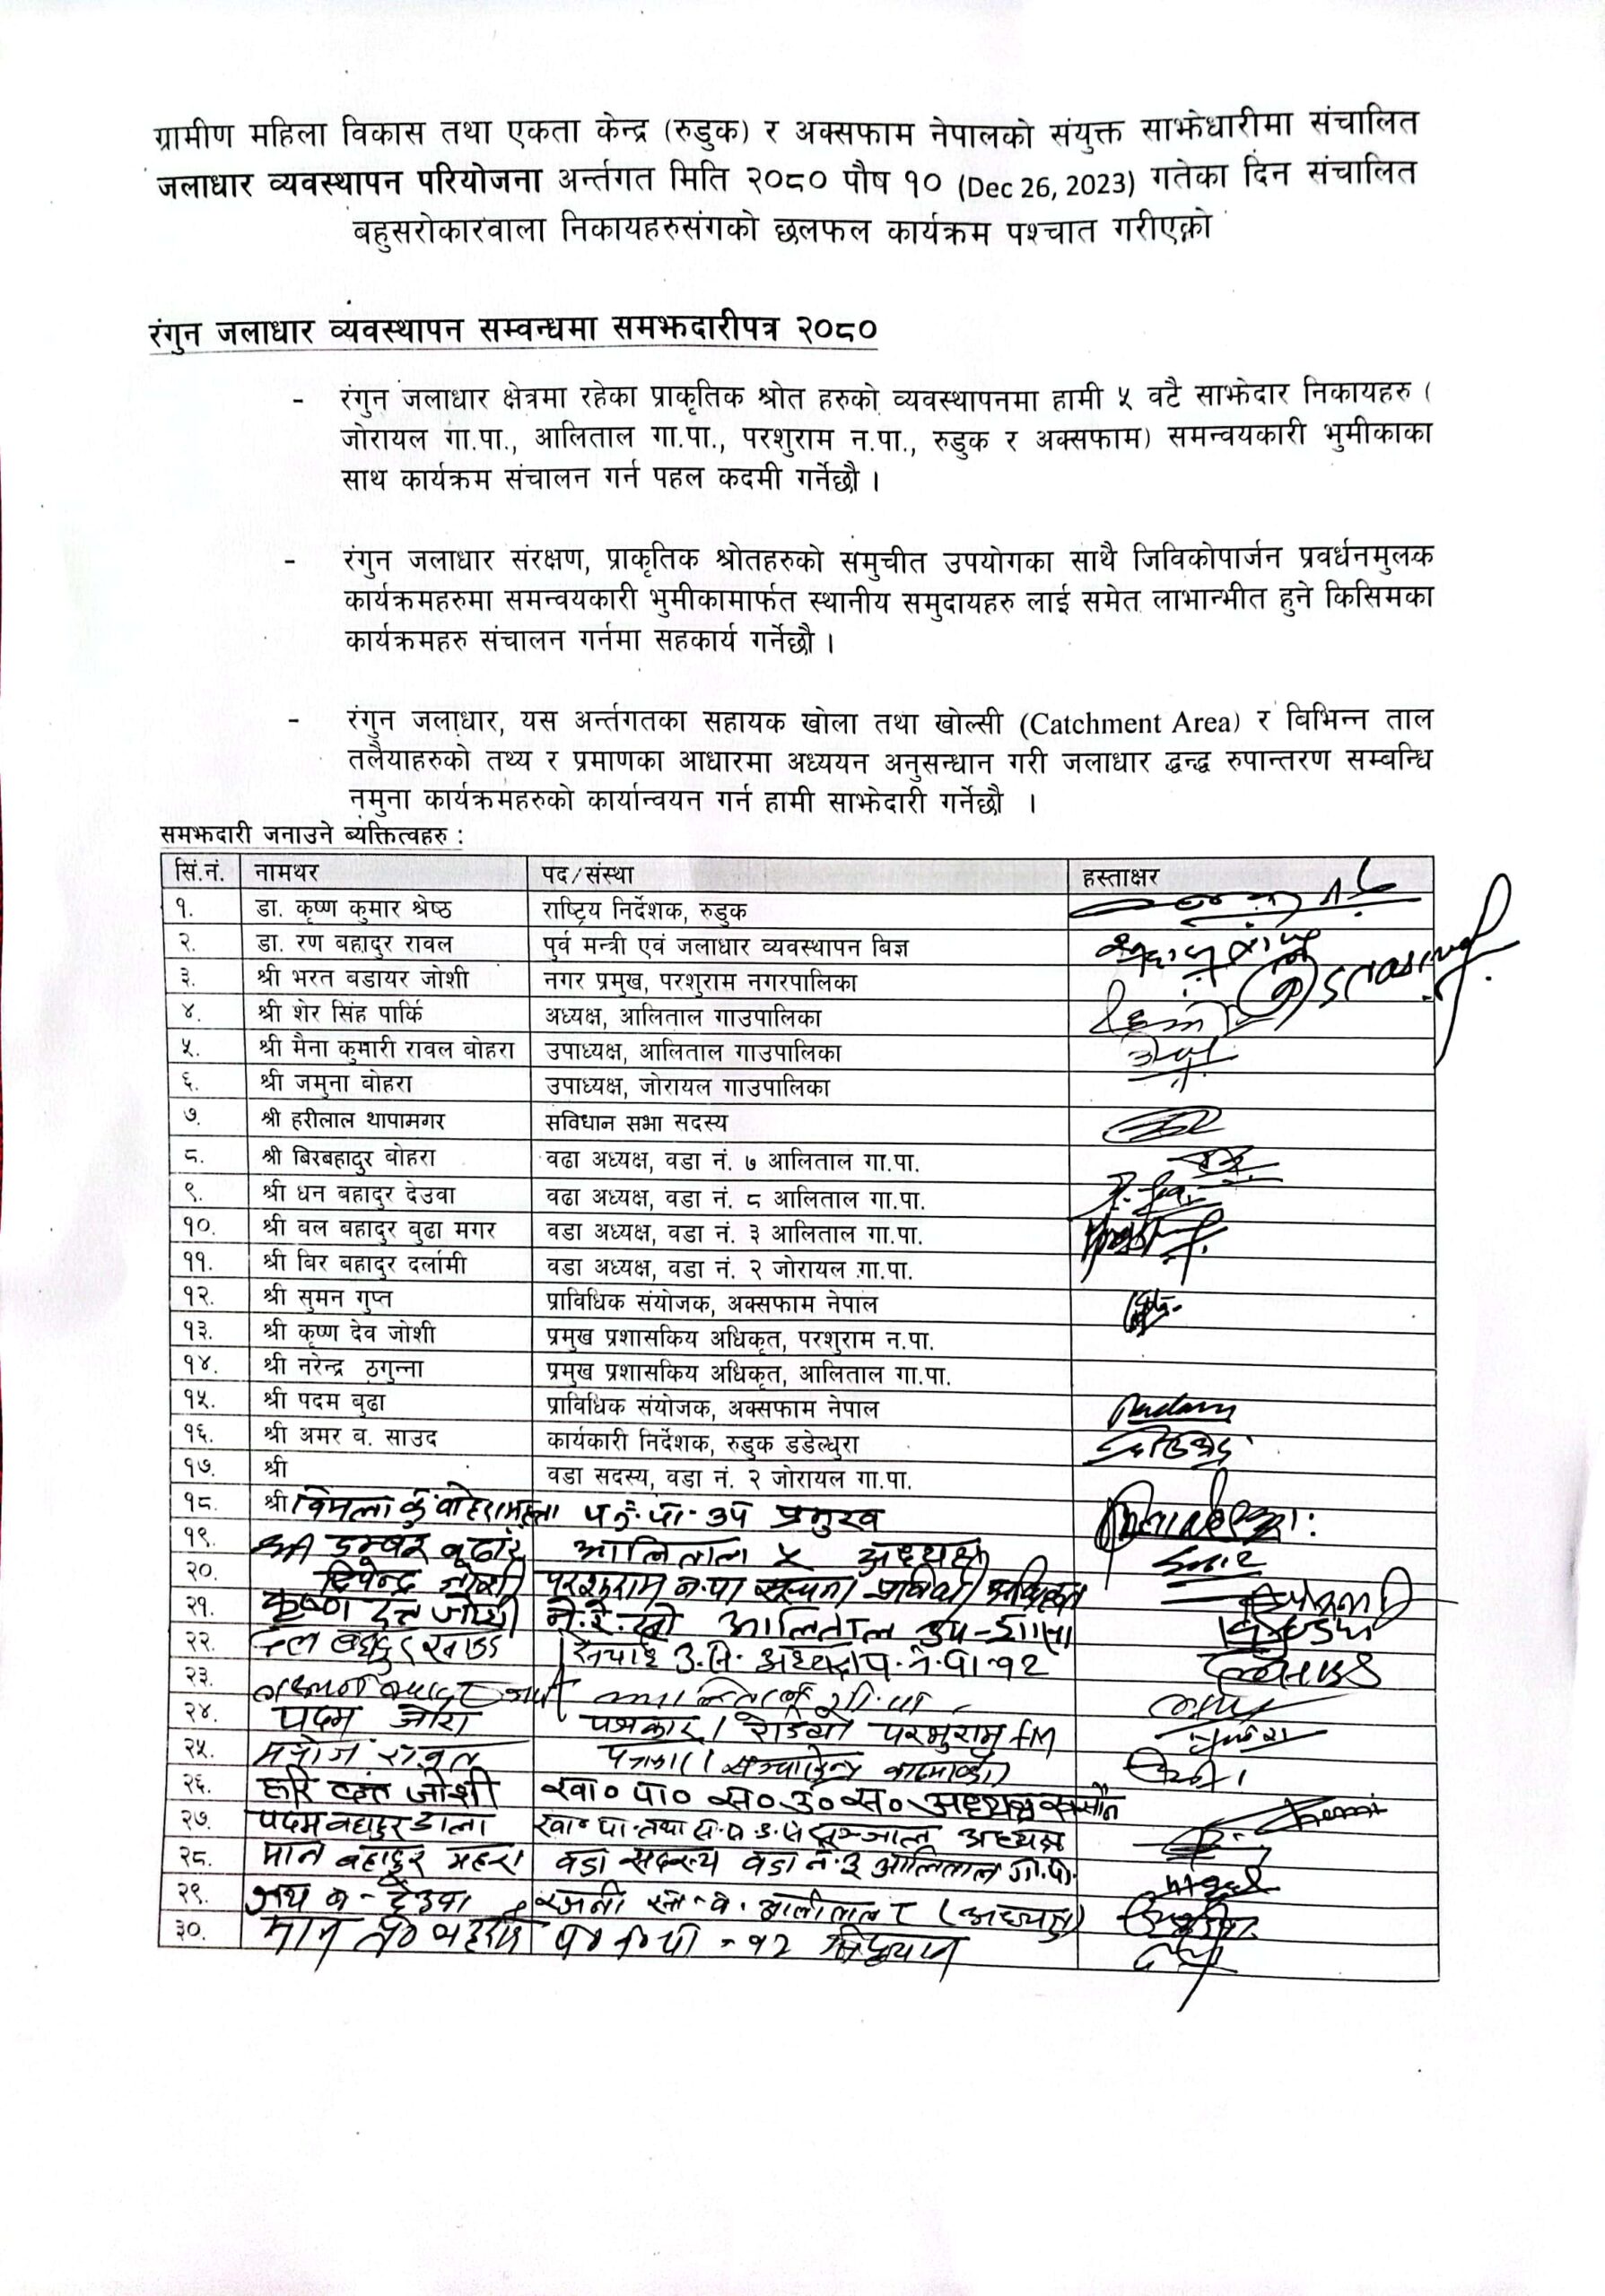 ग्रामीण महिला विकास तथा एकता केन्द्र (रुडुक) र अक्सफाम नेपालको संयुक्त साझेधारीमा संचालित
जलाधार व्यवस्थापन परियोजना अर्न्तगत मिति २०८० पौष १० (Dec 26, 2023) गतेका दिन संचालित
बहुसरोकारवाला निकायहरुसंगको छलफल कार्यक्रम पश्चात गरीएको
रंगुन जलाधार व्यवस्थापन सम्वन्धमा समझदारीपत्र २०८०
- रंगुन जलाधार क्षेत्रमा रहेका प्राकृतिक श्रोत हरुको व्यवस्थापनमा हामी ५ वटै साझेदार निकायहरु (
जोरायल गा.पा., आलिताल गा.पा., परशुराम न.पा., रुडुक र अक्सफाम) समन्वयकारी भुमीकाका
साथ कार्यक्रम संचालन गर्न पहल कदमी गर्नेछौ ।
- रंगुन जलाधार संरक्षण, प्राकृतिक श्रोतहरुको समुचीत उपयोगका साथै जिविकोपार्जन प्रवर्धनमुलक
कार्यक्रमहरुमा समन्वयकारी भुमीकामार्फत स्थानीय समुदायहरु लाई समेत लाभान्भीत हुने किसिमका
कार्यक्रमहरु संचालन गर्नमा सहकार्य गर्नेछौ ।
- रंगुन जलाधार, यस अर्न्तगतका सहायक खोला तथा खोल्सी (Catchment Area) र विभिन्न ताल
तलैयाहरुको तथ्य र प्रमाणका आधारमा अध्ययन अनुसन्धान गरी जलाधार द्धन्द्ध रुपान्तरण सम्बन्धि
नमुना कार्यक्रमहरुको कार्यान्वयन गर्न हामी साझेदारी गर्नेछौ ।
समझदारी जनाउने ब्यक्तित्वहरु :
सिं.नं. नामथर पद/संस्था हस्ताक्षर
१. डा. कृष्ण कुमार श्रेष्ठ राष्ट्रिय निर्देशक, रुडुक
२. डा. रण बहादुर रावल पुर्व मन्त्री एवं जलाधार व्यवस्थापन बिज्ञ
३. श्री भरत बडायर जोशी नगर प्रमुख, परशुराम नगरपालिका
४. श्री शेर सिंह पार्कि अध्यक्ष, आलिताल गाउपालिका
५. श्री मैना कुमारी रावल बोहरा उपाध्यक्ष, आलिताल गाउपालिका
६. श्री जमुना बोहरा उपाध्यक्ष, जोरायल गाउपालिका
७. श्री हरीलाल थापामगर सविधान सभा सदस्य
८. श्री बिरबहादुर बोहरा वढा अध्यक्ष, वडा नं. ७ आलिताल गा.पा.
९. श्री धन बहादुर देउवा वढा अध्यक्ष, वडा नं. ८ आलिताल गा.पा.
१०. श्री बल बहादुर बुढा मगर वडा अध्यक्ष, वडा नं. ३ आलिताल गा.पा.
११. श्री बिर बहादुर दर्लामी वडा अध्यक्ष, वडा नं. २ जोरायल गा.पा.
१२. श्री सुमन गुप्त प्राविधिक संयोजक, अक्सफाम नेपाल
१३. श्री कृष्ण देव जोशी प्रमुख प्रशासकिय अधिकृत, परशुराम न.पा.
१४. श्री नरेन्द्र ठगुन्ना प्रमुख प्रशासकिय अधिकृत, आलिताल गा.पा.
१५. श्री पदम बुढा प्राविधिक संयोजक, अक्सफाम नेपाल Padam
१६. श्री अमर ब. साउद कार्यकारी निर्देशक, रुडुक डडेल्धुरा
१७. श्री वडा सदस्य, वडा नं. २ जोरायल गा.पा.
१८. श्री विमला कु. प.न.पा. उप प्रमुख
१९. श्री डम्बर आलिताल ५ अध्यक्ष
२०. दिपेन्द्र जोशी परशुराम न.पा सूचना प्रविधी
२१. कृष्ण दत्त जोशी आलिताल उप-शाखा
२२. बहादुर उ.स. अध्यक्ष प.न.पा १२
२३.
२४. पदम पत्रकार / रेडियो परशुराम fM
२५. मनोज पत्रकार
२६. हरि दत्त जोशी खा० पा० स० उ० स० अध्यक्ष
२७. पदम बहादुर खा.पा. तथा अध्यक्ष
२८. मान बहादुर महरा वडा सदस्य वडा नं. ३ आलिताल गा.पा.
२९. आलीताल ८ (अध्यक्ष)
३०. मान १२